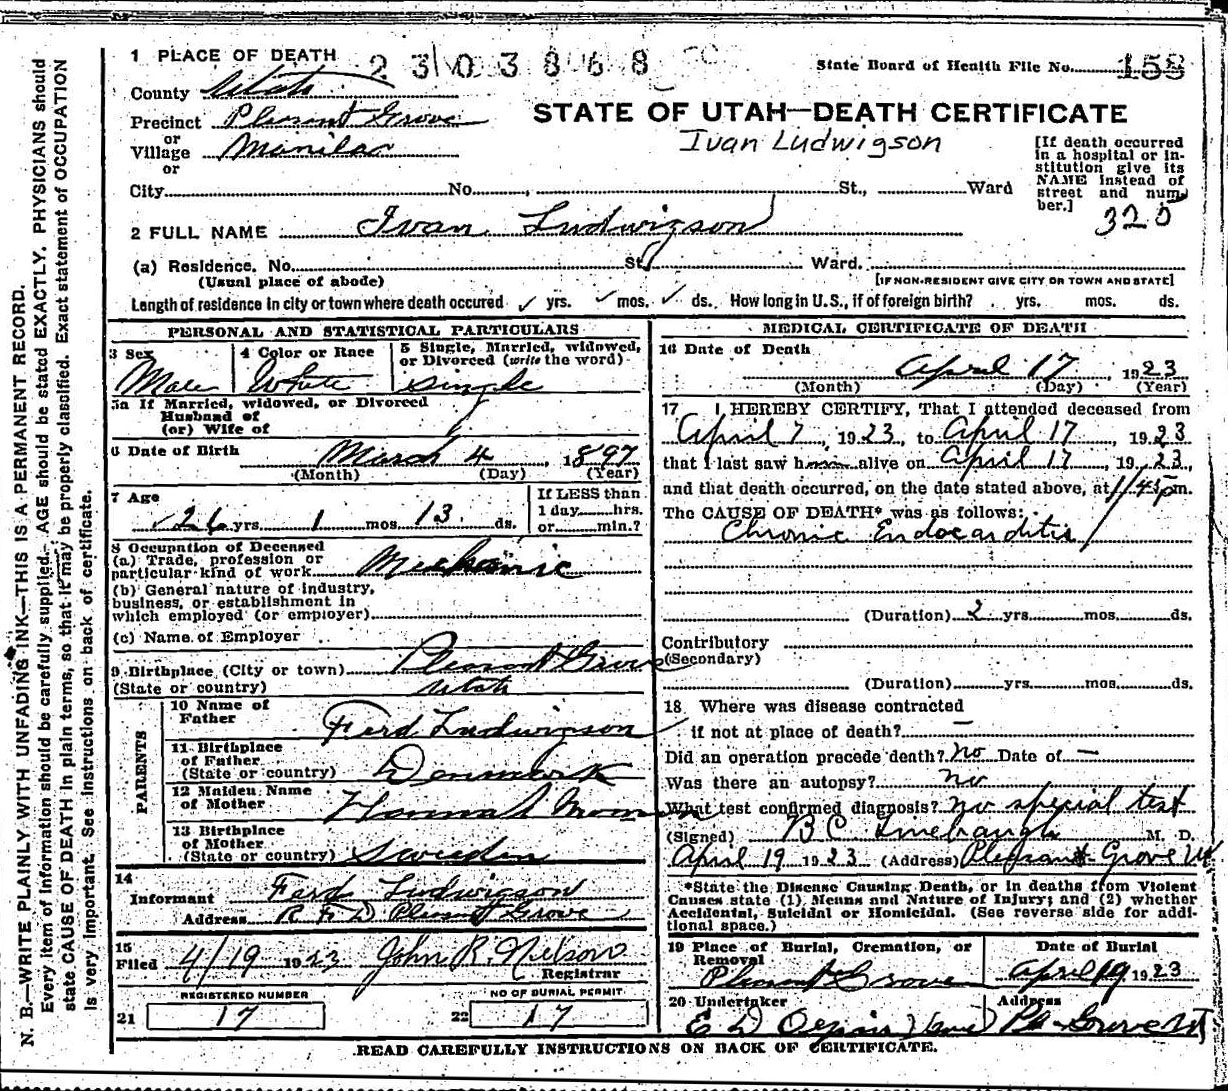 1 PLACE OF DEATH 2303868
State Board of Health File No. 158
County Utah
Precinct Pleasant Grove
or
Village Manila
or
City No. , St., Ward
STATE OF UTAH—DEATH CERTIFICATE
Ivan Ludwigson
[If death occurred
in a hospital or in-
stitution give its
NAME instead of
street and num-
ber.]
325
2 FULL NAME Ivan Ludwigson
(a) Residence. No. St. Ward.
(Usual place of abode) [IF NON-RESIDENT GIVE CITY OR TOWN AND STATE]
Length of residence in city or town where death occured ✓ yrs. ✓ mos. ✓ ds. How long in U.S., if of foreign birth? yrs. mos. ds.
PERSONAL AND STATISTICAL PARTICULARS
3 Sex
Male
4 Color or Race
White
5 Single, Married, widowed,
or Divorced (write the word)
Single
5a If Married, widowed, or Divorced
Husband of
(or) Wife of
6 Date of Birth March 4, 1897
(Month) (Day) (Year)
7 Age
26 yrs. 1 mos. 13 ds.
If LESS than
1 day hrs.
or min.?
8 Occupation of Deceased
(a) Trade, profession or
particular kind of work Mechanic
(b) General nature of industry,
business, or establishment in
which employed (or employer)
(c) Name of Employer
9 Birthplace (City or town) Pleasant Grove
(State or country) Utah
PARENTS
10 Name of
Father Ferd Ludwigson
11 Birthplace
of Father
(State or country) Denmark
12 Maiden Name
of Mother Hanna Monson
13 Birthplace
of Mother
(State or country) Sweden
14
Informant Ferd Ludwigson
Address R F D Pleasant Grove
15
Filed 4/19 1923 John R. Nelson
Registrar
REGISTERED NUMBER
21 17
NO OF BURIAL PERMIT
22 17
MEDICAL CERTIFICATE OF DEATH
16 Date of Death
April 17, 1923
(Month) (Day) (Year)
17 I HEREBY CERTIFY, That I attended deceased from
April 7, 1923, to April 17, 1923
that I last saw him alive on April 17, 1923,
and that death occurred, on the date stated above, at 11.45 pm.
The CAUSE OF DEATH* was as follows:
Chronic Endocarditis
(Duration) 2 yrs. mos. ds.
Contributory
(Secondary)
(Duration) yrs. mos. ds.
18. Where was disease contracted
if not at place of death? —
Did an operation precede death? no Date of —
Was there an autopsy? no
What test confirmed diagnosis? no special test
(Signed) B C Linebaugh M. D.
April 19 1923 (Address) Pleasant Grove Ut
*State the Disease Causing Death, or in deaths from Violent
Causes state (1) Means and Nature of Injury; and (2) whether
Accidental, Suicidal or Homicidal. (See reverse side for addi-
tional space.)
19 Place of Burial, Cremation, or
Removal
Pleasant Grove
Date of Burial
April 19 1923
20 Undertaker
E D
Address
Pl-Grove Ut
READ CAREFULLY INSTRUCTIONS ON BACK OF CERTIFICATE.
N. B.—WRITE PLAINLY WITH UNFADING INK—THIS IS A PERMANENT RECORD.
Every item of information should be carefully supplied. AGE should be stated EXACTLY. PHYSICIANS should
state CAUSE OF DEATH in plain terms, so that it may be properly classified. Exact statement of OCCUPATION
is very important. See instructions on back of certificate.